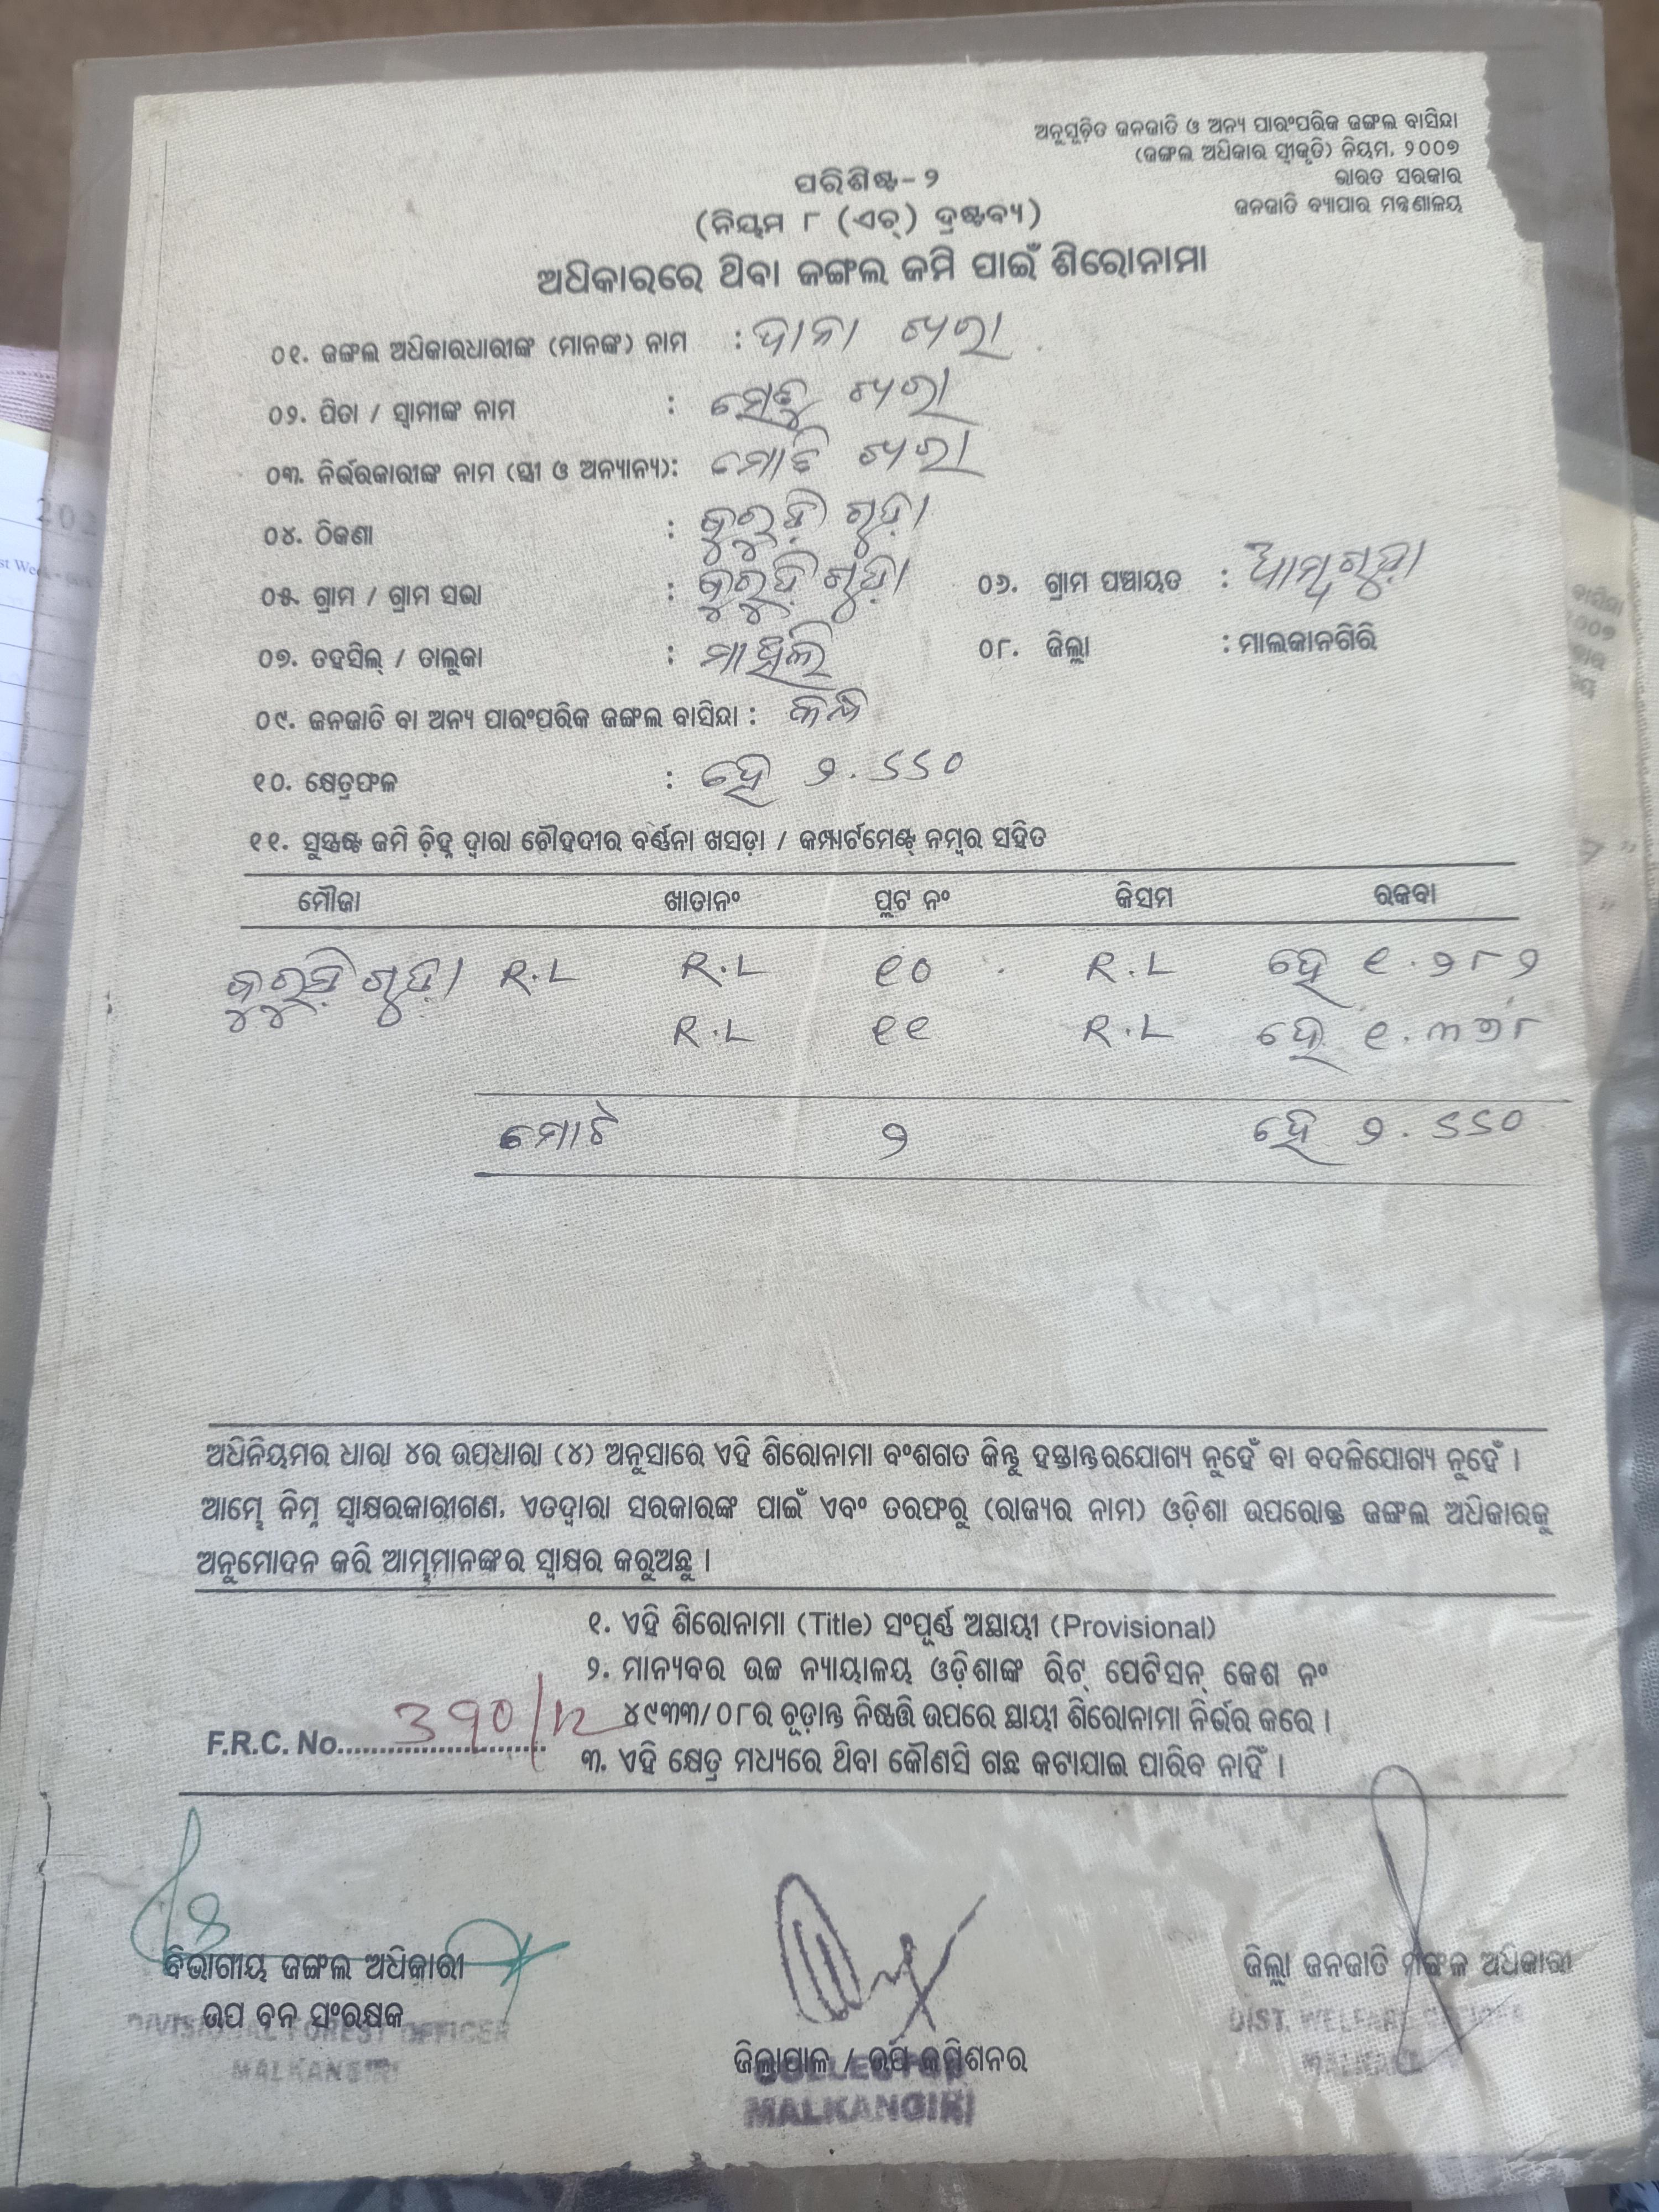 ଅନୁସୂଚିତ ଜନଜାତି ଓ ଅନ୍ୟ ପାରଂପରିକ ଜଙ୍ଗଲ ବାସିନ୍ଦା
(ଜଙ୍ଗଲ ଅଧିକାର ସ୍ୱୀକୃତି) ନିୟମ, ୨୦୦୭
ଭାରତ ସରକାର
ଜନଜାତି ବ୍ୟାପାର ମନ୍ତ୍ରଣାଳୟ
ପରିଶିଷ୍ଟ-୨
(ନିୟମ ୮ (ଏଚ୍) ଦ୍ରଷ୍ଟବ୍ୟ)
ଅଧିକାରରେ ଥିବା ଜଙ୍ଗଲ ଜମି ପାଇଁ ଶିରୋନାମା
୦୧. ଜଙ୍ଗଲ ଅଧିକାରଧାରୀଙ୍କ (ମାନଙ୍କ) ନାମ : ଦାନା ଖରା
୦୨. ପିତା / ସ୍ୱାମୀଙ୍କ ନାମ : ଖରା
୦୩. ନିର୍ଭରକାରୀଙ୍କ ନାମ (ସ୍ତ୍ରୀ ଓ ଅନ୍ୟାନ୍ୟ): ଖରା
୦୪. ଠିକଣା : ଗୁଡ଼ା
୦୫. ଗ୍ରାମ / ଗ୍ରାମ ସଭା : ଗୁଡ଼ା ୦୬. ଗ୍ରାମ ପଞ୍ଚାୟତ :
୦୭. ତହସିଲ୍ / ତାଲୁକା : ମାଥିଲି ୦୮. ଜିଲ୍ଲା : ମାଲକାନଗିରି
୦୯. ଜନଜାତି ବା ଅନ୍ୟ ପାରଂପରିକ ଜଙ୍ଗଲ ବାସିନ୍ଦା : କନ୍ଧ
୧୦. କ୍ଷେତ୍ରଫଳ : ହେ ୨.୬୬୦
୧୧. ସୁସ୍ପଷ୍ଟ ଜମି ଚ଼ିହ୍ନ ଦ୍ୱାରା ଚୌହଦୀର ବର୍ଣ୍ଣନା ଖସଡ଼ା / କମ୍ପାର୍ଟମେଣ୍ଟ୍ ନମ୍ବର ସହିତ
ମୌଜା ଖାତାନଂ ପ୍ଲଟ ନଂ କିସମ ରକବା
ଗୁଡ଼ା R.L R.L ୧୦ R.L ହେ ୧.୨୮୨
R.L ୧୧ R.L ହେ ୧.୩୭୮
ମୋଟ ୨ ହେ ୨.୬୬୦
ଅଧିନିୟମର ଧାରା ୪ର ଉପଧାରା (୪) ଅନୁସାରେ ଏହି ଶିରୋନାମା ବଂଶଗତ କିନ୍ତୁ ହସ୍ତାନ୍ତରଯୋଗ୍ୟ ନୁହେଁ ବା ବଦଳିଯୋଗ୍ୟ ନୁହେଁ ।
ଆମ୍ଭେ ନିମ୍ନ ସ୍ୱାକ୍ଷରକାରୀଗଣ, ଏତଦ୍ୱାରା ସରକାରଙ୍କ ପାଇଁ ଏବଂ ତରଫରୁ (ରାଜ୍ୟର ନାମ) ଓଡ଼ିଶା ଉପରୋକ୍ତ ଜଙ୍ଗଲ ଅଧିକାରକୁ
ଅନୁମୋଦନ କରି ଆମ୍ଭମାନଙ୍କର ସ୍ୱାକ୍ଷର କରୁଅଛୁ ।
୧. ଏହି ଶିରୋନାମା (Title) ସଂପୂର୍ଣ୍ଣ ଅସ୍ଥାୟୀ (Provisional)
୨. ମାନ୍ୟବର ଉଚ୍ଚ ନ୍ୟାୟାଳୟ ଓଡ଼ିଶାଙ୍କ ରିଟ୍ ପେଟିସନ୍ କେଶ ନଂ
୪୯୩୩/୦୮ର ଚୂଡ଼ାନ୍ତ ନିଷ୍ପତ୍ତି ଉପରେ ସ୍ଥାୟୀ ଶିରୋନାମା ନିର୍ଭର କରେ ।
F.R.C. No. 390/12
୩. ଏହି କ୍ଷେତ୍ର ମଧ୍ୟରେ ଥିବା କୌଣସି ଗଛ କଟାଯାଇ ପାରିବ ନାହିଁ ।
ବିଭାଗୀୟ ଜଙ୍ଗଲ ଅଧିକାରୀ
ଉପ ବନ ସଂରକ୍ଷକ
DIVISIONAL FOREST OFFICER
MALKANGIRI
ଜିଲ୍ଲାପାଳ / ଉପ କମିଶନର
COLLECTOR
MALKANGIRI
ଜିଲ୍ଲା ଜନଜାତି ମଙ୍ଗଳ ଅଧିକାରୀ
DIST. WELFARE OFFICER